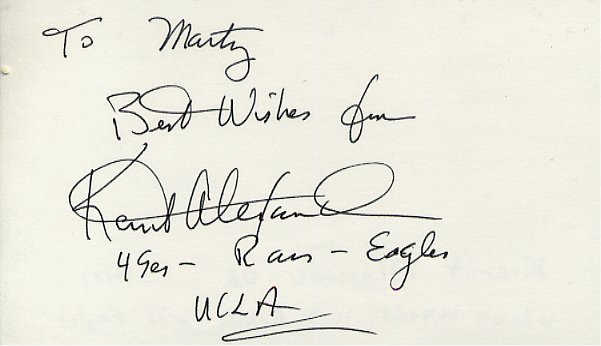 To Marty
Best Wishes from
Kermit Alexander
49ers - Rams - Eagles
UCLA